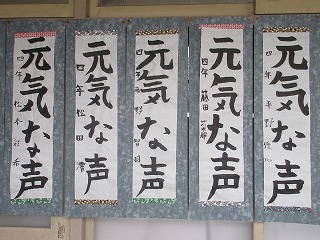 元気な声
四年 松本
元気な声
四年 松田 澪
元気な声
元気な声
四年 藤田
元気な声
四年 平野